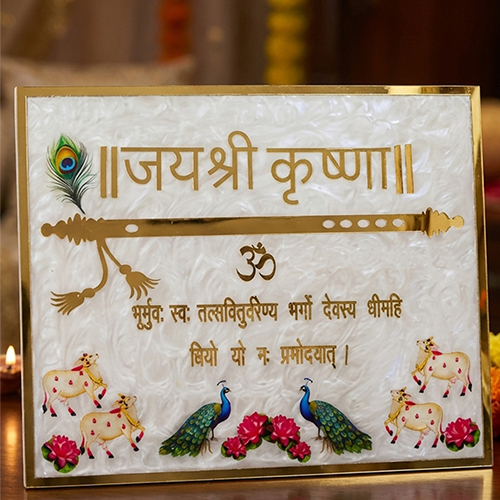 ॥जय श्री कृष्णा॥
ॐ
भूर्मुवः स्वः तत्सवितुर्वरेण्य भर्गो देवस्य धीमहि
धियो यो नः प्रमोदयात् ।